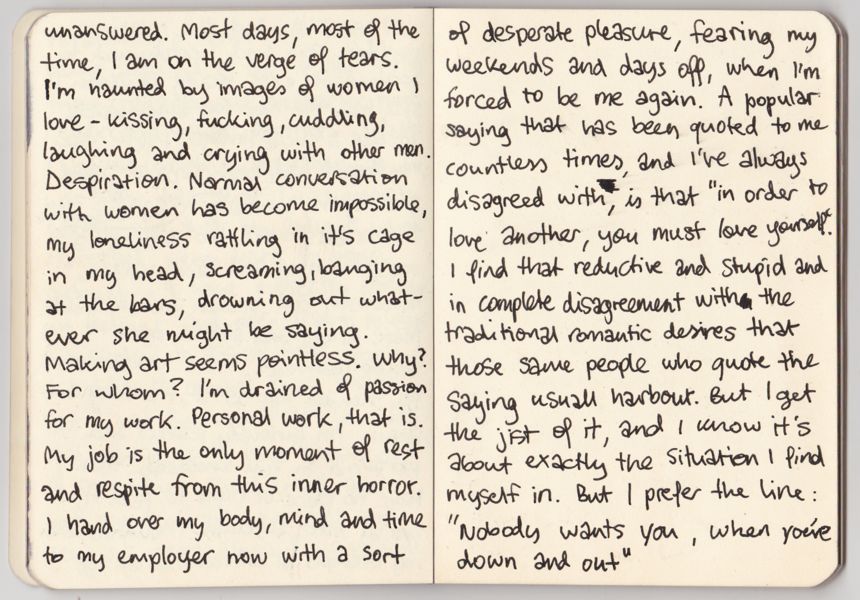 unanswered. Most days, most of the
time, I am on the verge of tears.
I'm haunted by images of women I
love - kissing, fucking, cuddling,
laughing and crying with other men.
Despiration. Normal conversation
with women has become impossible,
my loneliness rattling in it's cage
in my head, screaming, banging
at the bars, drowning out what-
ever she might be saying.
Making art seems pointless. Why?
For whom? I'm drained of passion
for my work. Personal work, that is.
My job is the only moment of rest
and respite from this inner horror.
I hand over my body, mind and time
to my employer now with a sort
of desperate pleasure, fearing my
weekends and days off, when I'm
forced to be me again. A popular
saying that has been quoted to me
countless times, and I've always
disagreed with, is that "in order to
love another, you must love yourself".
I find that reductive and stupid and
in complete disagreement with the
traditional romantic desires that
those same people who quote the
saying usuall harbour. But I get
the jist of it, and I know it's
about exactly the situation I find
myself in. But I prefer the line:
"Nobody wants you, when you're
down and out"